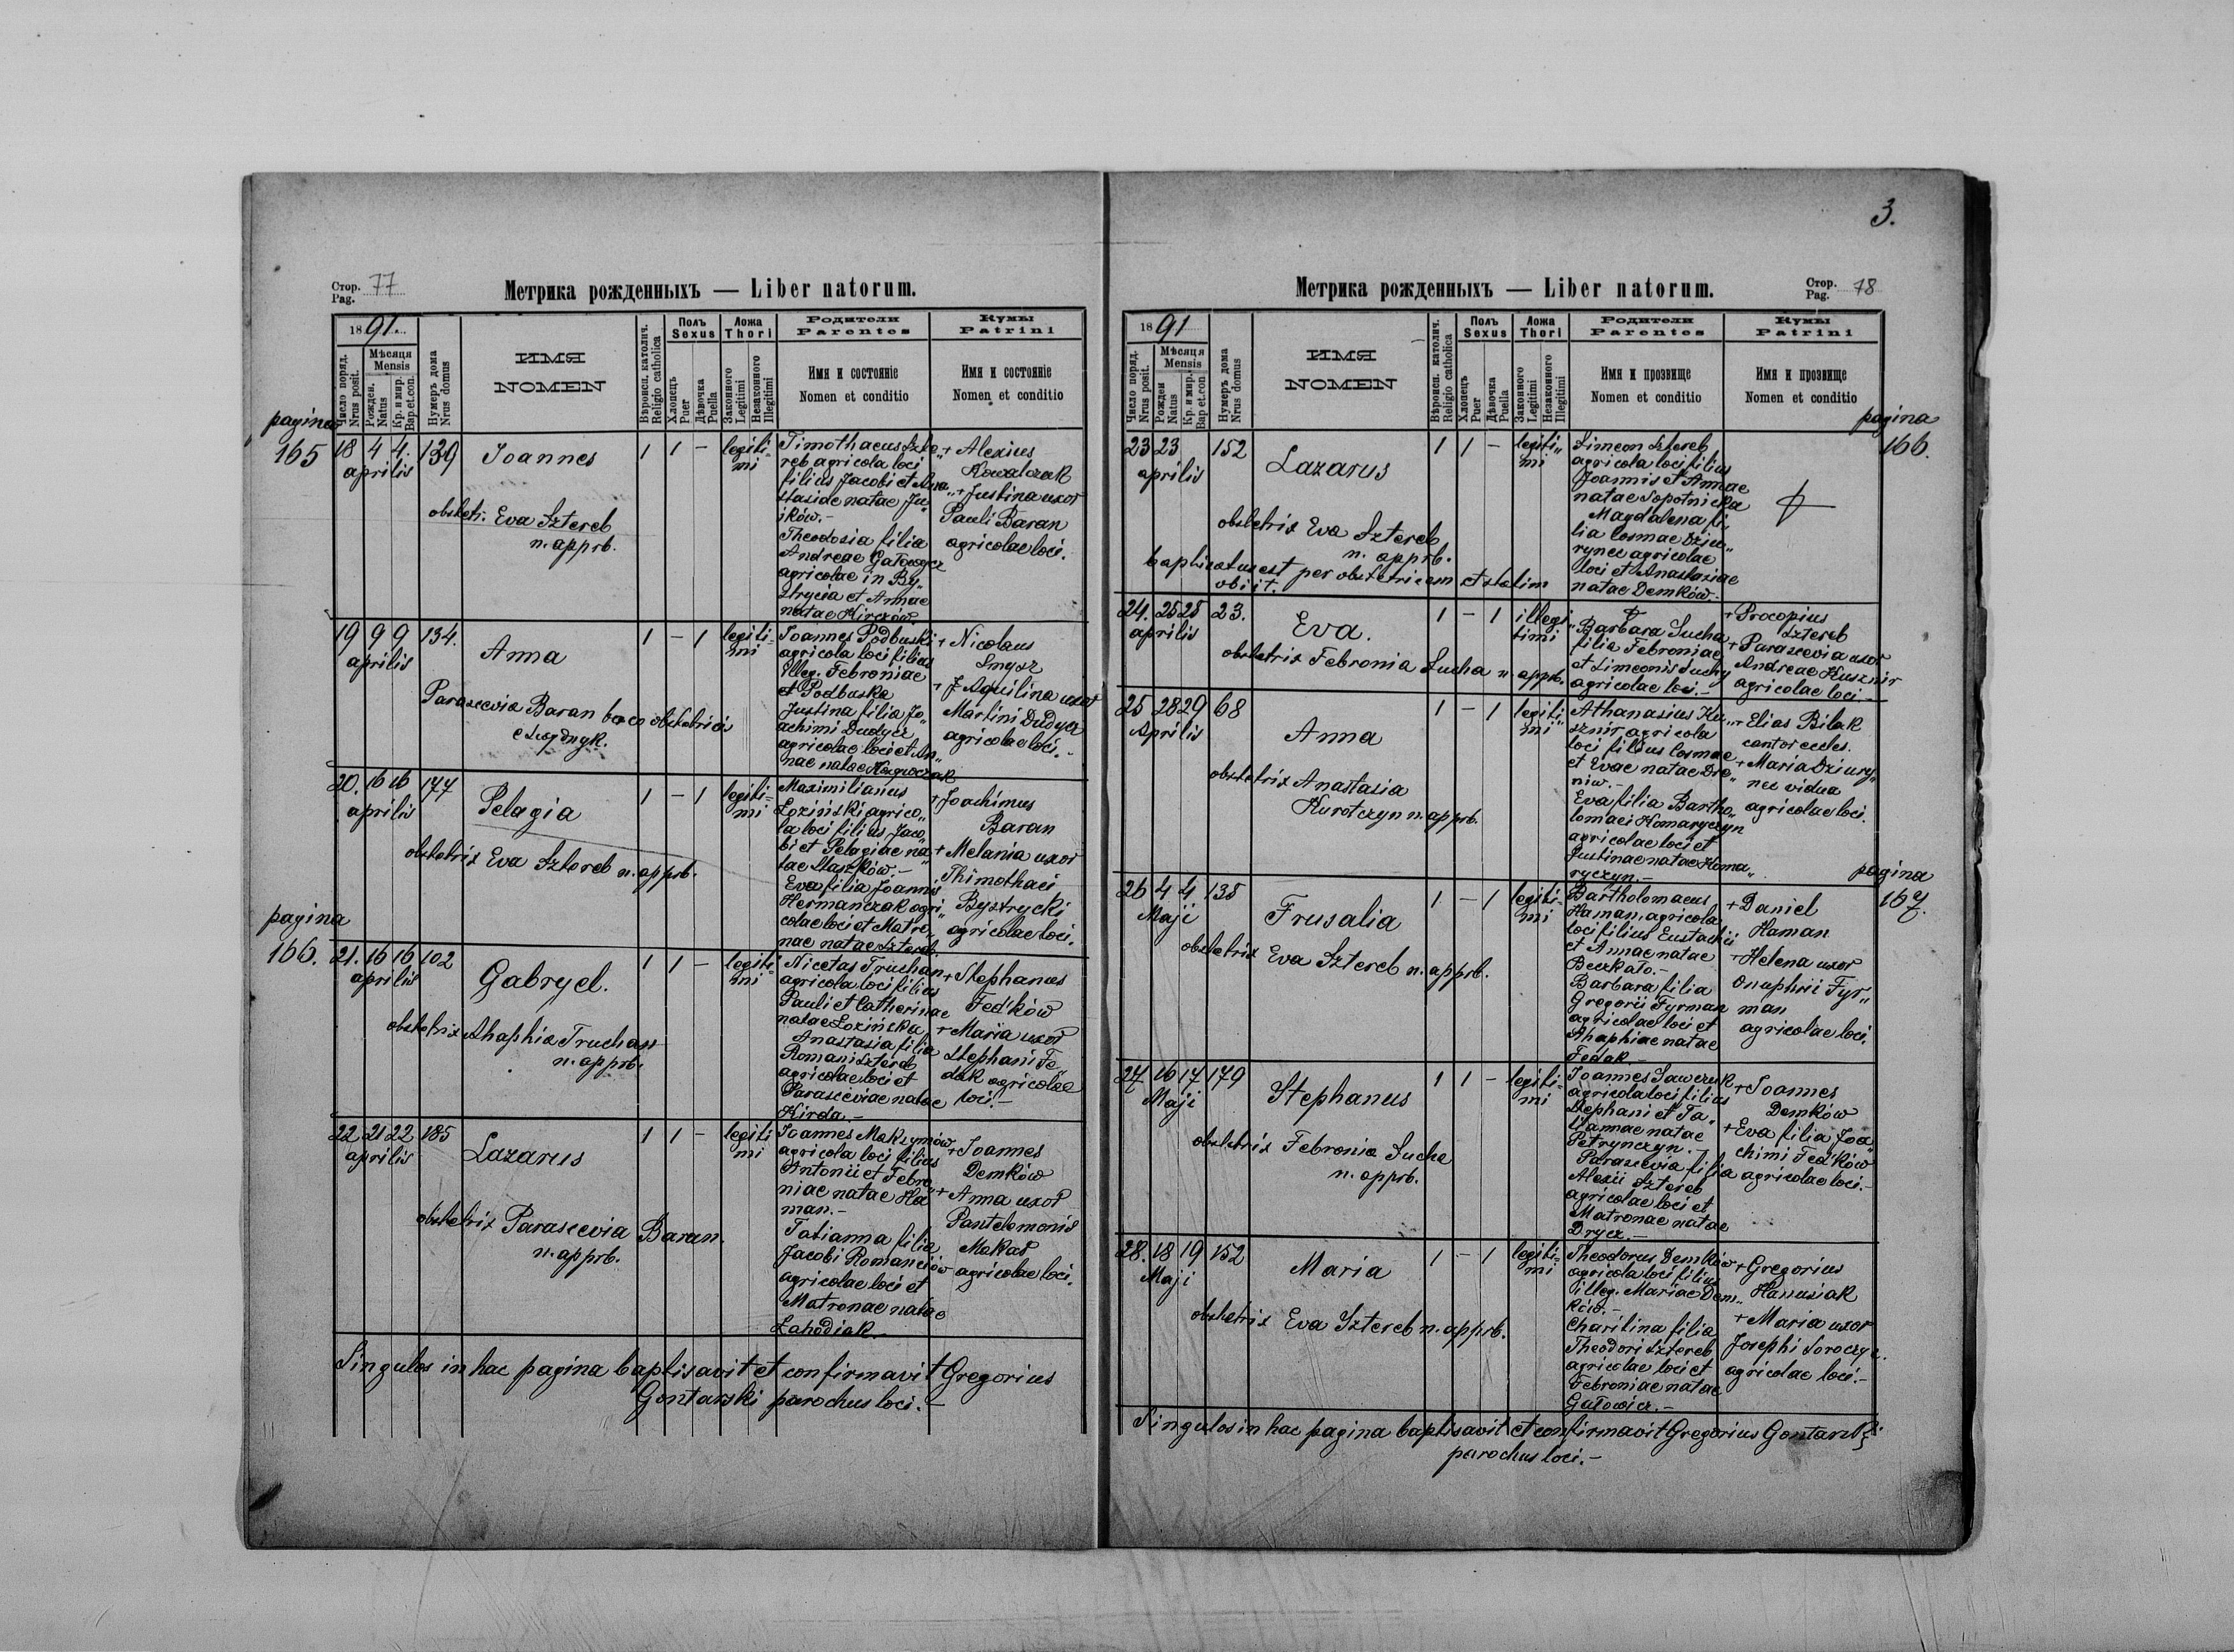 Стор.
Pag. 77
Метрика рожденныхъ — Liber natorum.
1891.
Число поряд.
Nrus posit.
Мѣсяця
Mensis
Рожден.
Natus
Кр. и мир.
Bap.et.con.
Нумеръ дома
Nrus domus
ИМЯ
NOMEN
Вѣроисп. католич.
Religio catholica
Полъ
Sexus
Хлопецъ
Puer
Дѣвочка
Puella
Ложа
Thori
Законного
Legitimi
Незаконного
Illegitimi
Родители
Parentes
Имя и состояніе
Nomen et conditio
Кумы
Patrini
Имя и состояніе
Nomen et conditio
pagina
165
18 4 4. 139 Joannes 1 1 – legiti-
aprilis mi
obstetr. Eva Sztereb
n. apprb.
Timothaeus Szte„
reb agricola loci
filius Jacobi et Ana„
stasiae natae Ju„
ików.–
Theodosia filia
Andreae Gałowycz
agricolae in By„
strycia et Annae
natae Kirczów.
+ Alexius
Kowalczak
+ Justina uxor
Pauli Baran
agricolae loci.
19 9 9 134. Anna 1 – 1 legiti-
aprilis mi
Parascevia Baran loco obstetricis
Joannes Podbuski
agricola loci filius
illeg. Febroniae
Podbuska
Justina filia Jo„
achimi Dudycz
agricolae loci et An„
nae natae
+ Nicolaus
Smysz
+ Aquilina uxor
Martini Dudycz
agricolae loci.–
20. 16 16 177 Pelagia 1 – 1 legiti-
aprilis mi
obstetrix Eva Sztereb n. apprb.
Maximilianus
Łoziński agrico„
la loci filius Jaco„
bi et Pelagiae na„
tae Staszków.–
Eva filia Joannis
Hermanczak agri„
colae loci et Matro„
nae natae Sztereb.
+ Joachimus
Baran
+ Melania uxor
Thimothaei
Bystrycki
agricolae loci.
pagina
166.
21. 16 16 102 Gabryel. 1 1 – legiti-
aprilis mi
obstetrix Ahaphia Truchan
n. apprb.
Nicetas Truchan
agricola loci filius
Pauli et Catherinae
natae Łozińska,
Anastasia filia
Romani Sztereb
agricolae loci et
Parasceviae natae
Kirda.–
+ Stephanus
Fedków
+ Maria uxor
Stephani Fe„
dak agricolae
loci.–
22 21 22 185 Lazarus 1 1 – legiti
aprilis mi
obstetrix Parascevia Baran.
n. apprb.
Joannes Maksymów
agricola loci filius
Antonii et Febro„
niae natae Ha
man.–
Tatianna filia
Jacobi Romanciów
agricolae loci et
Matronae natae
Łahodiak.–
+ Joannes
Demków
+ Anna uxor
Pantelemonis
Makar
agricolae loci.
Singulos in hac pagina baptisavit et confirmavit Gregorius
Gontarski parochus loci.–
3.
Метрика рожденныхъ — Liber natorum.
Стор.
Pag. 78
1891
Число поряд.
Nrus posit.
Мѣсяця
Mensis
Рожден
Natus
Кр. и мир.
Bap et.con.
Нумеръ дома
Nrus domus
ИМЯ
NOMEN
Вѣроисп. католич.
Religio catholica
Полъ
Sexus
Хлопецъ
Puer
Дѣвочка
Puella
Ложа
Thori
Законного
Legitimi
Незаконного
Illegitimi
Родители
Parentes
Имя и прозвище
Nomen et conditio
Кумы
Patrini
Имя и прозвище
Nomen et conditio
pagina
166.
23 23 152 Lazarus 1 1 – legiti„
aprilis mi
obstetrix Eva Sztereb
n. apprb.
baptisatus est per obstetricem et statim
obiit.
Simeon Sztereb
agricola loci filius
Joannis et Annae
natae Sopotnicka
Magdalena fi„
lia Cosmae Dziu„
rynec agricolae
loci et Anastasiae
natae Demków.–
24. 25 25 23. Eva. 1 – 1 illegi„
aprilis timi
obstetrix Febronia Sucha n. apprb.
Barbara Sucha
filia Febroniae
et Simeonis Suchy
agricolae loci.–
+ Procopius
Sztereb
+ Parascevia uxor
Andreae Kusznir
agricolae loci.–
25 28 29 68 Anna 1 – 1 legiti„
Aprilis mi
obstetrix Anastasia
Kurotczyn n. apprb.
Athanasius Ku„
sznir agricola
loci filius Cosmae
et Evae natae Dre„
niw.–
Eva filia Bartho„
lomaei Komaryczyn
agricolae loci et
Justinae natae Koma„
ryczyn.–
+ Elias Bilak
cantor eccles.
+ Maria Dziury„
nec vidua
agricolae loci.
pagina
167.
26 4 4 138 Frusalia 1 – 1 legiti-
Maji mi
obstetrix Eva Sztereb n. apprb.
Bartholomaeus
Haman, agricola
loci filius Eustachii
et Annae natae
Beczkało.–
Barbara filia
Gregorii Fyrman
agricolae loci et
Ahaphiae natae
Fedak.–
+ Daniel
Haman
+ Helena uxor
Onuphrii Fyr„
man
agricolae loci.
27 16 17 179 Stephanus 1 1 – legiti-
Maji mi
obstetrix Febronia Sucha
n. apprb.
Joannes Sawczuk
agricola loci filius
Stephani et Ta„
tiannae natae
Petrynczyn.–
Parascevia filia
Alexii Sztereb
agricolae loci et
Matronae natae
Drycz.–
+ Joannes
Demków
+ Eva filia Joa„
chimi Fedków
agricolae loci.–
28. 18 19 152 Maria 1 – 1 legiti-
Maji mi
obstetrix Eva Sztereb n. apprb.
Theodorus Demków
agricola loci filius
illeg. Mariae Dem„
ków.–
Charitina filia
Theodori Sztereb
agricolae loci et
Febroniae natae
Gałowicz.–
+ Gregorius
Hanusiak
+ Maria uxor
Josephi
agricolae loci.–
Singulos in hac pagina baptisavit et confirmavit Gregorius Gontarski
parochus loci.–